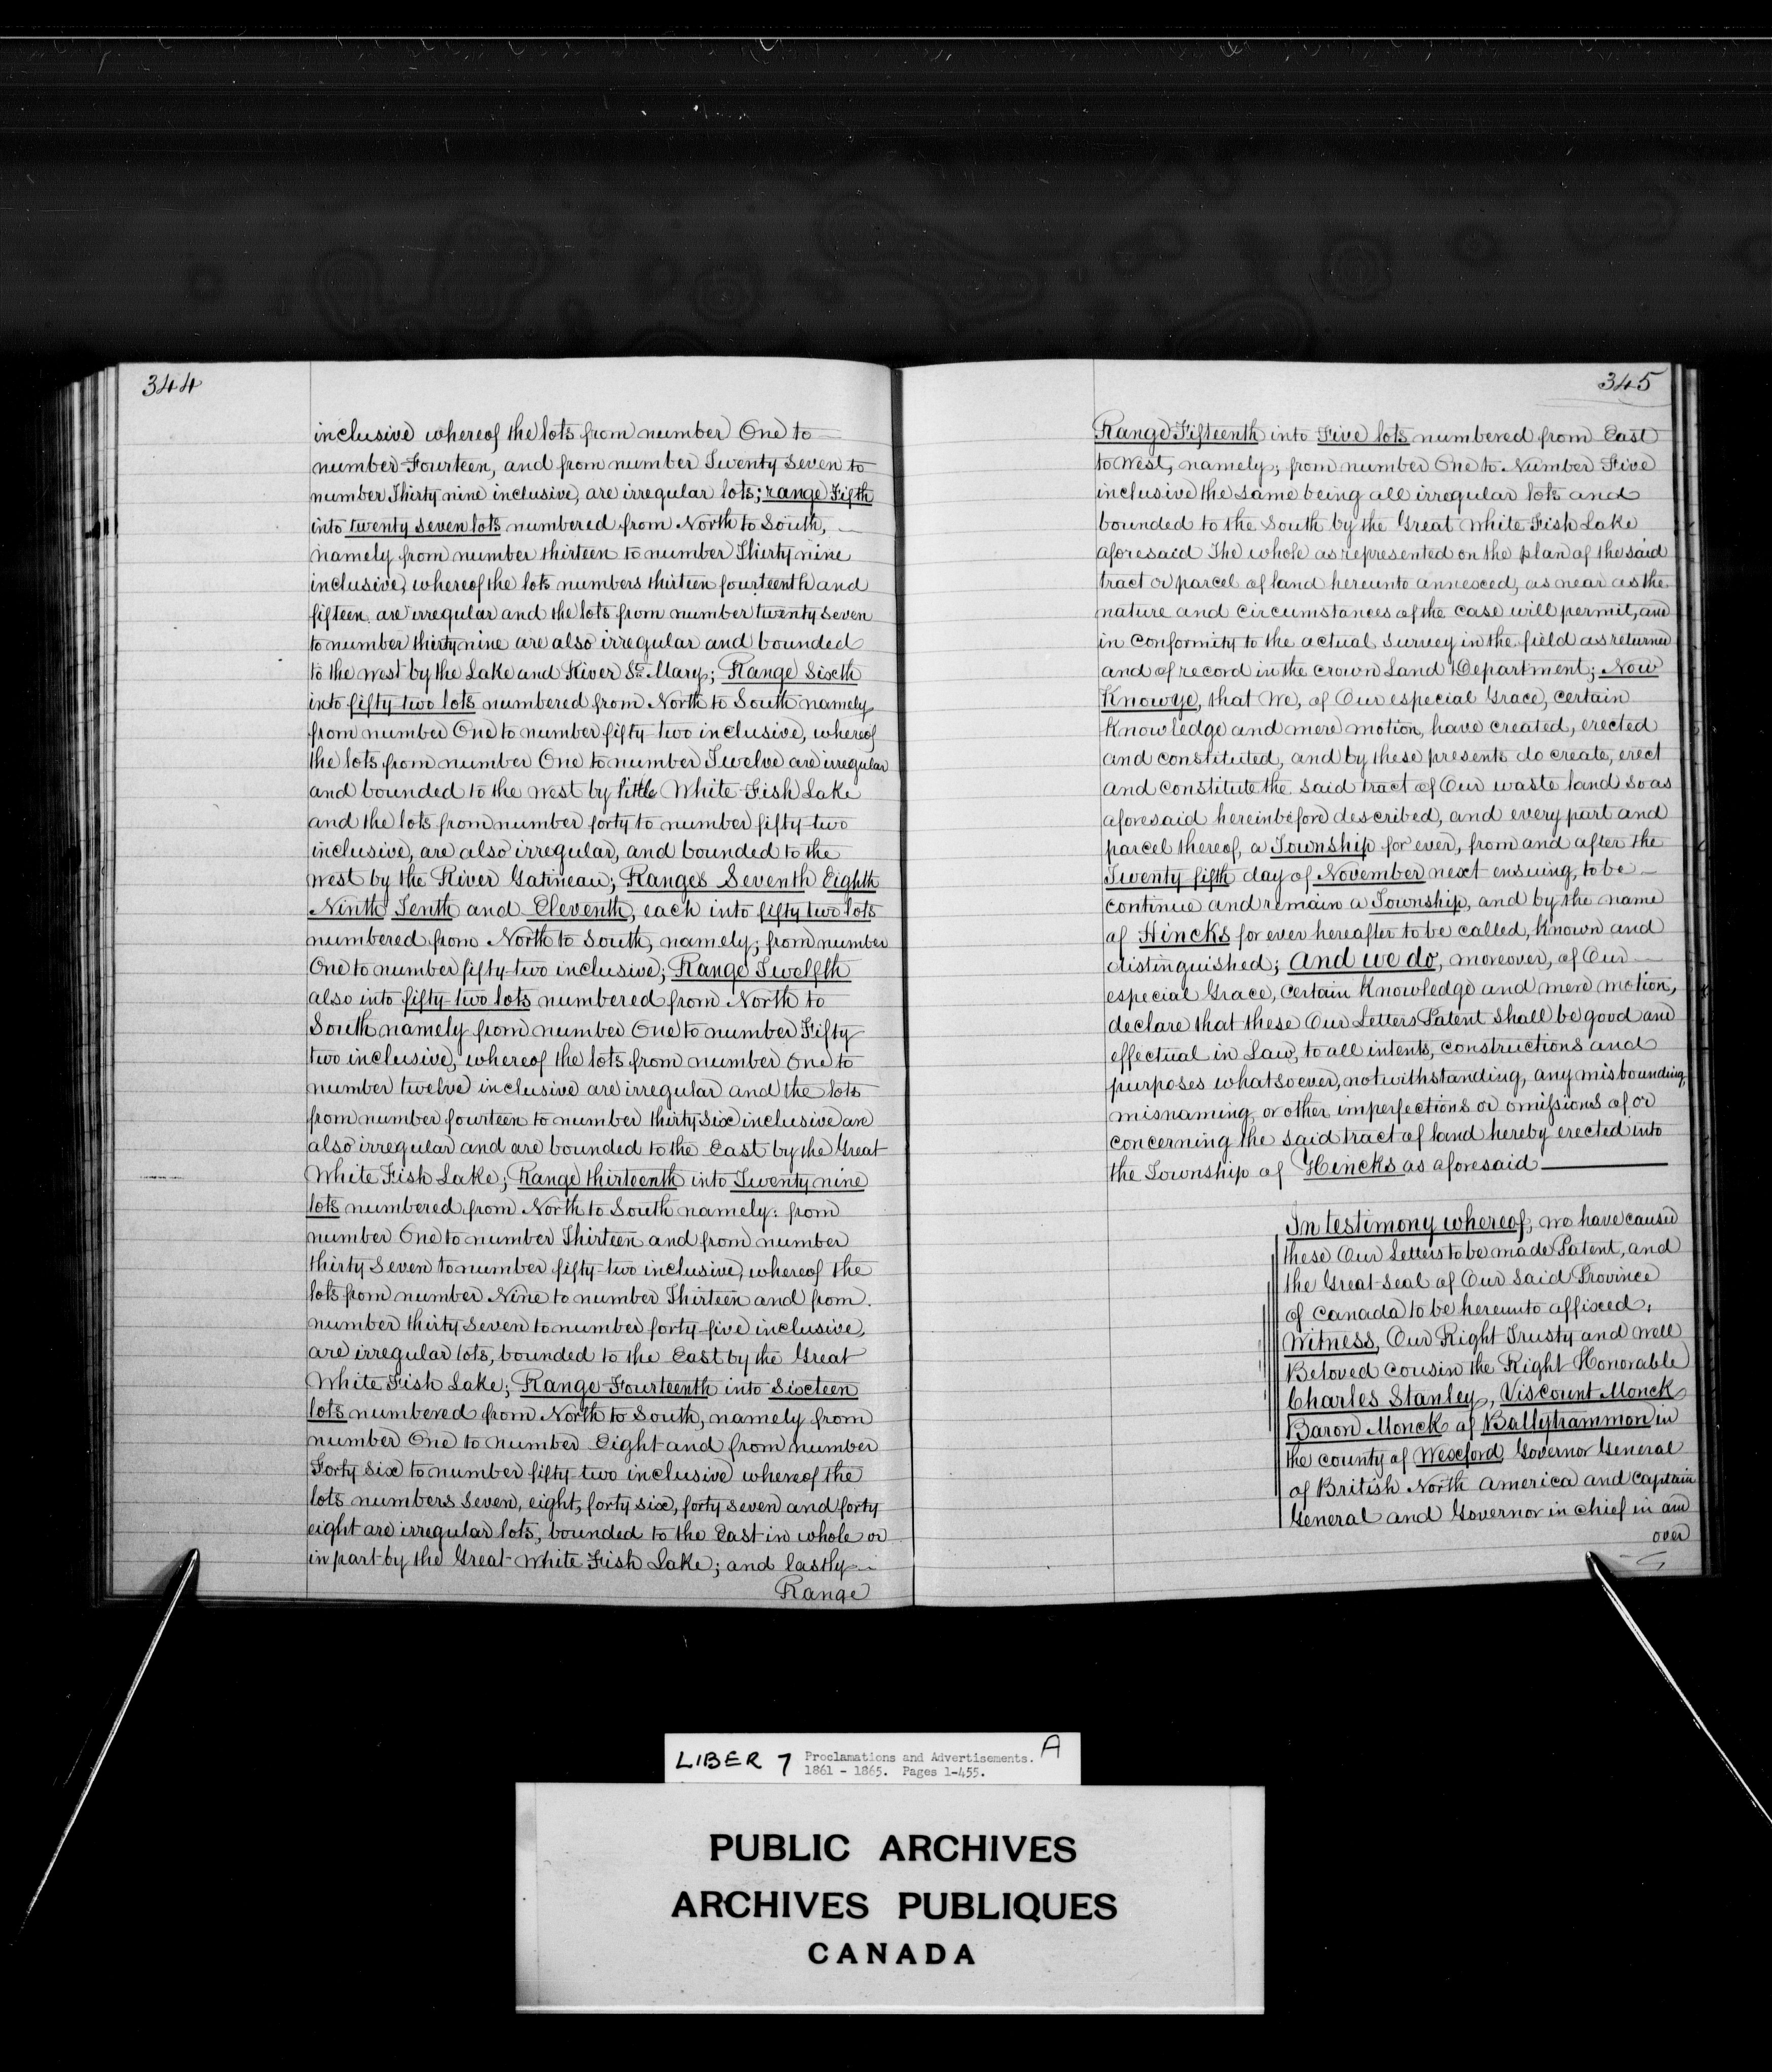 344
inclusive whereof the lots from number One to
number Fourteen, and from number Twenty Seven to
number Thirty nine inclusive, are irregular lots; range Fifth
into twenty seven lots numbered from North to South,
namely from number thirteen to number Thirty nine
inclusive, whereof the lots numbers thirteen fourteenth and
fifteen are irregular and the lots from number twenty seven
to number thirty nine are also irregular and bounded
to the west by the Lake and River St. Mary; Range Sixth
into fifty-two lots numbered from North to South namely
from number One to number fifty-two inclusive, whereof
the lots from number One to number Twelve are irregular
and bounded to the west by little White Fish Lake
and the lots from number forty to number fifty-two
inclusive, are also irregular, and bounded to the
West by the River Gatineau; Ranges Seventh Eighth
Ninth Tenth and Eleventh, each into fifty two lots
numbered from North to South, namely; from number
One to number fifty-two inclusive; Range Twelfth
also into fifty-two lots numbered from North to
South namely from number One to number Fifty
two inclusive, whereof the lots from number One to
number twelve inclusive are irregular and the lots
from number fourteen to number thirty six inclusive are
also irregular and are bounded to the East by the Great
White Fish Lake; Range thirteenth into Twenty nine
lots numbered from North to South namely: from
number One to number Thirteen and from number
thirty seven to number fifty-two inclusive, whereof the
lots from number Nine to number Thirteen and from.
number thirty seven to number forty-five inclusive,
are irregular lots, bounded to the East by the Great
White Fish Lake; Range Fourteenth into Sixteen
lots numbered from North to South, namely from
number One to number Eight and from number
Forty six to number fifty-two inclusive whereof the
lots numbers seven, eight, forty six, forty seven and forty
eight are irregular lots, bounded to the East in whole or
in part by the Great White Fish Lake; and lastly
Range
345
Range Fifteenth into Five lots numbered from East
to West, namely; from number One to Number Five
inclusive the same being all irregular lots and
bounded to the South by the Great White Fish Lake
aforesaid The whole as represented on the plan of the said
tract or parcel of land hereunto annexed, as near as the
nature and circumstances of the case will permit, and
in conformity to the actual survey in the field as returned
and of record in the Crown Land Department; Now
Know ye, that We, of Our especial Grace, certain
Knowledge and mere motion, have created, erected
and constituted, and by these presents do create, erect
and constitute the said tract of Our waste land so as
aforesaid hereinbefore described, and every part and
parcel thereof, a Township for ever, from and after the
Twenty fifth day of November next ensuing, to be
continue and remain a Township, and by the name
of Hincks for ever hereafter to be called, known and
distinguished; And we do, moreover, of Our
especial Grace, Certain Knowledge and mere motion,
declare that these Our Letters Patent shall be good and
effectual in Law, to all intents, constructions and
purposes whatsoever, notwithstanding, any misbounding,
misnaming, or other imperfections or omissions of or
concerning the said tract of land hereby erected into
the Township of Hincks as aforesaid
In testimony whereof, we have caused
these Our Letters to be made Patent, and
the Great Seal of Our said Province
of Canada to be hereunto affixed.
Witness, Our Right Trusty and Well
Beloved Cousin the Right Honorable
Charles Stanley, Viscount Monck
Baron Monck of Ballytrammon in
the county of Wexford Governor General
of British North America and Captain
General and Governor in chief in and
over
LIBER 7 Proclamations and Advertisements. A
1861 - 1865. Pages 1-455.
PUBLIC ARCHIVES
ARCHIVES PUBLIQUES
CANADA